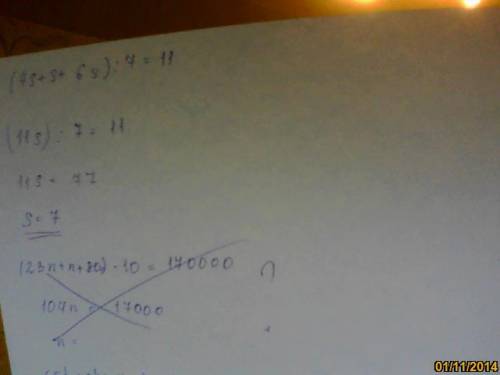 (4s+s+ 6s) : 7 = 11
(11s) : 7 = 11
11s = 77
s = 7
(23n+n+80) · 10 = 170000
104n = 17000
n =
01/11/2014